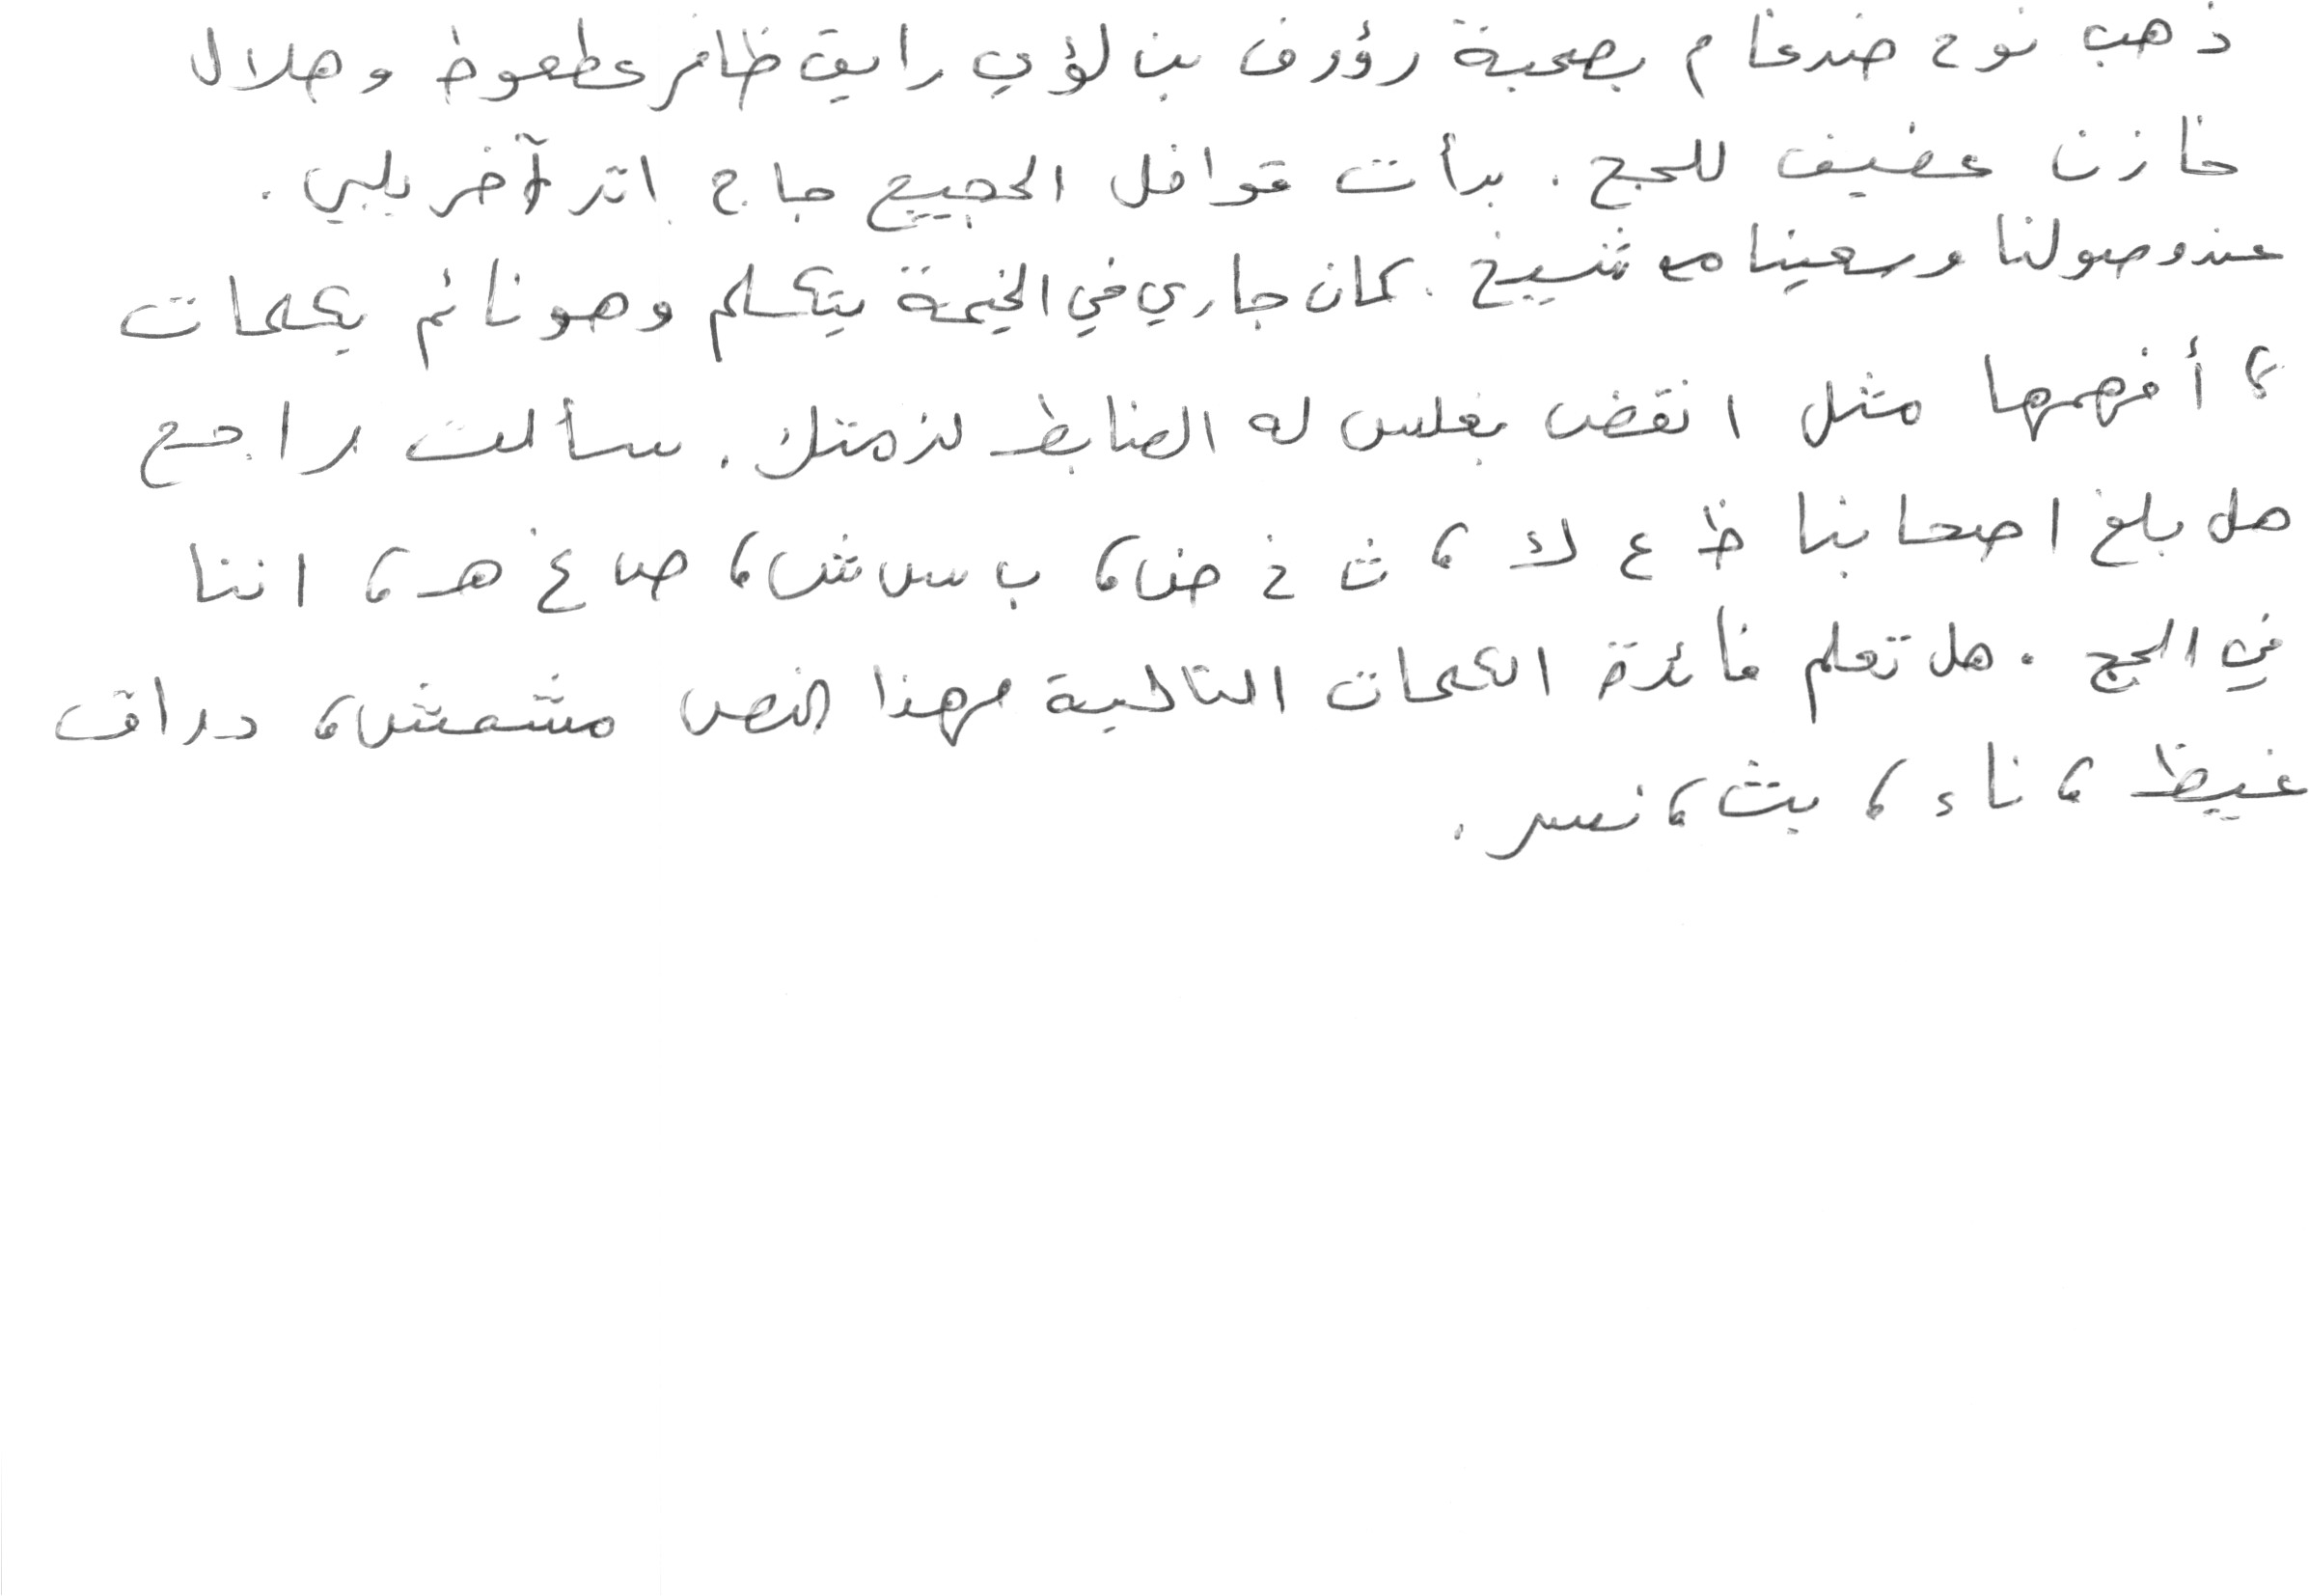 ذهب نوح ضرغام بصحبة رؤوف بن لؤي رايق ظافر عطعوط وهلال
خازن عفيف للحج . بدأت قوافل الحجيج حاج اثر آخر يلبي .
عند وصولنا وسعينا مع شيخ . كان جاري في الخيمة يتكلم وهو نائم بكلمات
لا أفهمها مثل انقض بغلس له الضابط لزمتك . سألت راجح
هل بلغ اصحابنا ظ ع ك ، ث خ ض ، ب س ش ، ص غ هـ ، اننا
في الحج . هل تعلم فائدة الكلمات التالية بهذا النص مشمش ، دراق
غيظ ، ناء ، يث ، نسر .